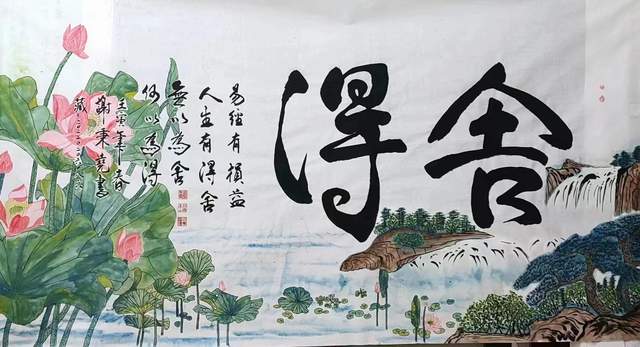 舍得
易經有損益
人生有得舍
無以為舍
何以為得
壬寅 春
謝秉
藏